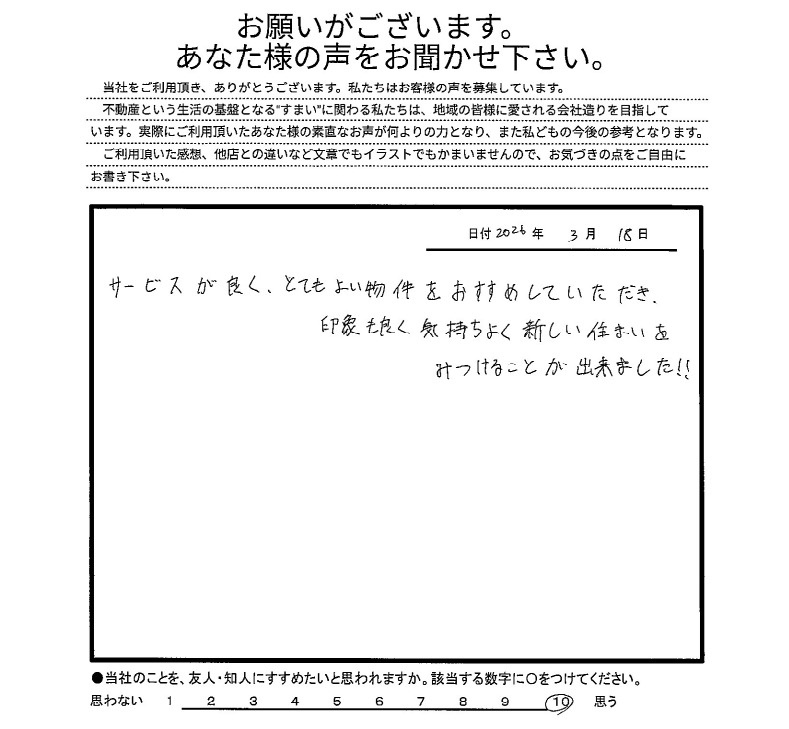 お願いがございます。
あなた様の声をお聞かせ下さい。
当社をご利用頂き、ありがとうございます。私たちはお客様の声を募集しています。
不動産という生活の基盤となる"すまい"に関わる私たちは、地域の皆様に愛される会社造りを目指して
います。実際にご利用頂いたあなた様の素直なお声が何よりの力となり、また私どもの今後の参考となります。
ご利用頂いた感想、他店との違いなど文章でもイラストでもかまいませんので、お気づきの点をご自由に
お書き下さい。
日付2026年 3月 18日
サービスが良く、とてもよい物件をおすすめしていただき、
印象も良く気持ちよく新しい住まいを
みつけることが出来ました!!
●当社のことを、友人・知人にすすめたいと思われますか。該当する数字に○をつけてください。
思わない 1 2 3 4 5 6 7 8 9 10 思う